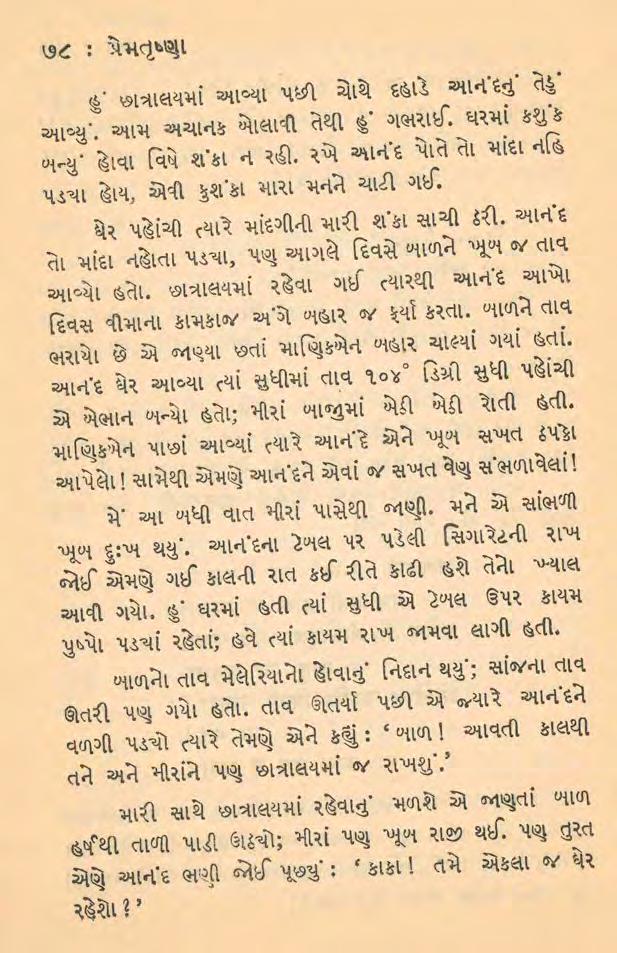 ૭૮ : પ્રેમતૃષ્ણા
હું છાત્રાલયમાં આવ્યા પછી ચોથે દહાડે આનંદનું તેડું
આવ્યું. આમ અચાનક બોલાવી તેથી હું ગભરાઈ. ઘરમાં કશુંક
બન્યું હોવા વિષે શંકા ન રહી. રખે આનંદ પોતે તો માંદા નહિ
પડ્યા હોય, એવી કુશંકા મારા મનને ચાટી ગઈ.
ઘેર પહોંચી ત્યારે માંદગીની મારી શંકા સાચી ઠરી. આનંદ
તો માંદા નહોતા પડ્યા, પણ આગલે દિવસે બાળને ખૂબ જ તાવ
આવ્યો હતો. છાત્રાલયમાં રહેવા ગઈ ત્યારથી આનંદ આખો
દિવસ વીમાના કામકાજ અંગે બહાર જ ફર્યા કરતા. બાળને તાવ
ભરાયો છે એ જાણ્યા છતાં માણિકબેન બહાર ચાલ્યાં ગયાં હતાં.
આનંદ ઘેર આવ્યા ત્યાં સુધીમાં તાવ ૧૦૪° ડિગ્રી સુધી પહોંચી
એ બેભાન બન્યો હતો; મીરાં બાજુમાં બેઠી બેઠી રોતી હતી.
માણિકબેન પાછાં આવ્યાં ત્યારે આનંદે એને ખૂબ સખત ઠપકો
આપેલો! સામેથી એમણે આનંદને એવાં જ સખત વેણ સંભળાવેલાં!
મેં આ બધી વાત મીરાં પાસેથી જાણી. મને એ સાંભળી
ખૂબ દુઃખ થયું. આનંદના ટેબલ પર પડેલી સિગારેટની રાખ
જોઈ એમણે ગઈ કાલની રાત કઈ રીતે કાઢી હશે તેનો ખ્યાલ
આવી ગયો. હું ઘરમાં હતી ત્યાં સુધી એ ટેબલ ઉપર કાયમ
પુષ્પો પડ્યાં રહેતાં; હવે ત્યાં કાયમ રાખ જામવા લાગી હતી.
બાળનો તાવ મેલેરિયાનો હોવાનું નિદાન થયું; સાંજના તાવ
ઊતરી પણ ગયો હતો. તાવ ઊતર્યા પછી એ જ્યારે આનંદને
વળગી પડ્યો ત્યારે તેમણે એને કહ્યું : ‘બાળ! આવતી કાલથી
તને અને મીરાંને પણ છાત્રાલયમાં જ રાખશું.’
મારી સાથે છાત્રાલયમાં રહેવાનું મળશે એ જાણતાં બાળ
હર્ષથી તાળી પાડી ઊઠ્યો; મીરાં પણ ખૂબ રાજી થઈ. પણ તુરત
એણે આનંદ ભણી જોઈ પૂછ્યું : ‘કાકા! તમે એકલા જ ઘેર
રહેશો?’